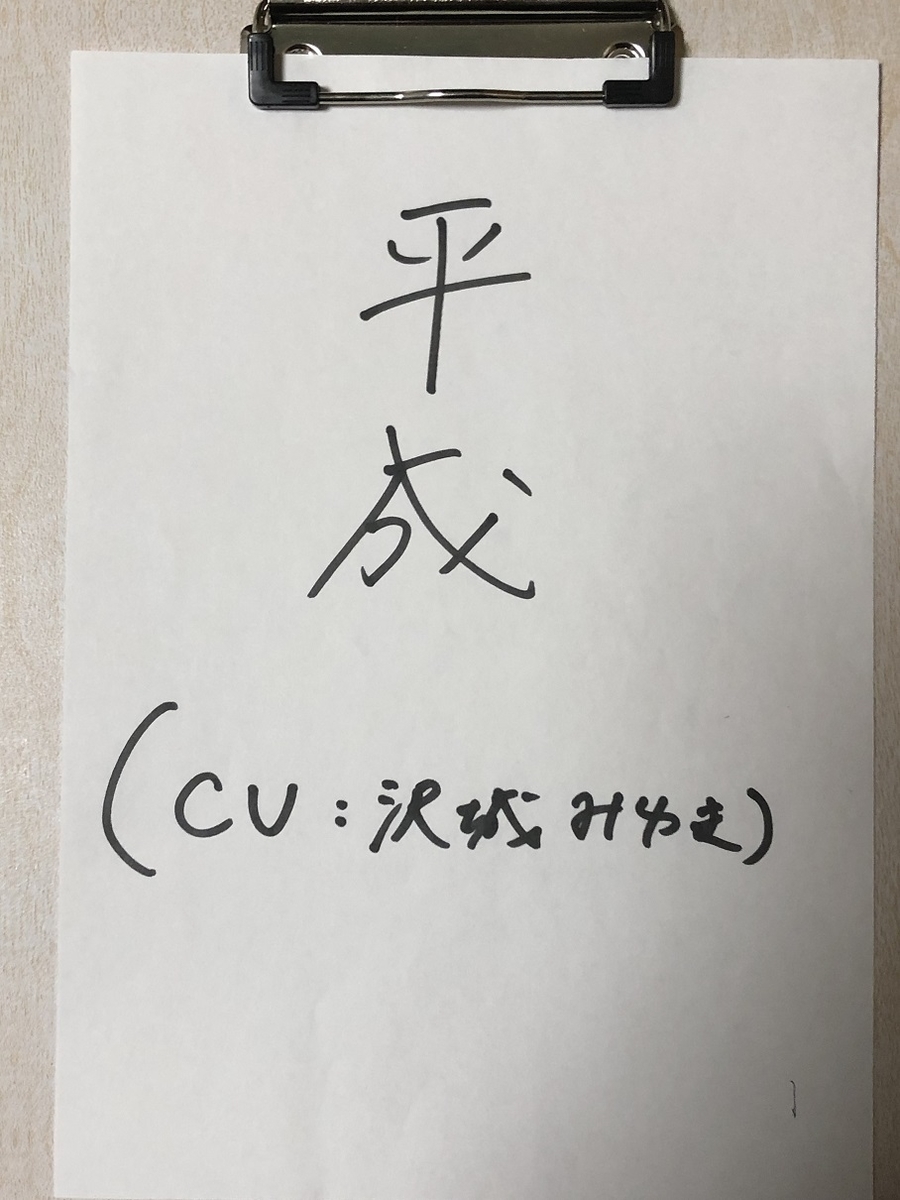 平
成
(CV:沢城みゆき)